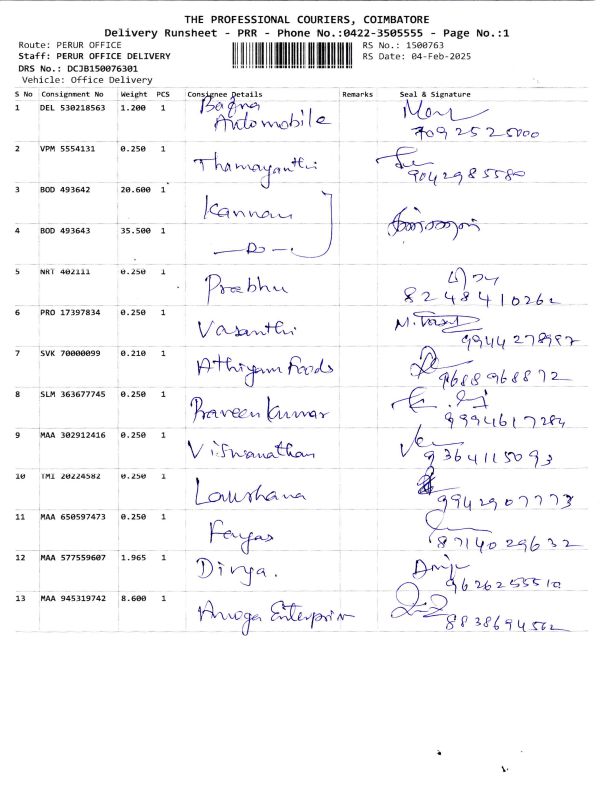 THE PROFESSIONAL COURIERS, COIMBATORE
Delivery Runsheet - PRR - Phone No.:0422-3505555 - Page No.:1
Route: PERUR OFFICE RS No.: 1500763
Staff: PERUR OFFICE DELIVERY RS Date: 04-Feb-2025
DRS No.: DCJB150076301
Vehicle: Office Delivery
S No Consignment No Weight PCS Consignee Details Remarks Seal & Signature
1 DEL 530218563 1.200 1 Bagna
Automobile 7092525000
2 VPM 5554131 0.250 1 Thamayanthi 9042985580
3 BOD 493642 20.600 1 Kannan
4 BOD 493643 35.500 1 —Do—
5 NRT 402111 0.250 1 Prabhu
8248410262
6 PRO 17397834 0.250 1 Vasanthi
9944278987
7 SVK 70000099 0.210 1 Athiyam Foods
9688968872
8 SLM 363677745 0.250 1 Praveen Kumar
9994617284
9 MAA 302912416 0.250 1 Viswanathan
9364115093
10 TMI 20224582 0.250 1
9942907773
11 MAA 650597473 0.250 1
8714029632
12 MAA 577559607 1.965 1 Divya.
9626255510
13 MAA 945319742 8.600 1 Enterprise
8838694562